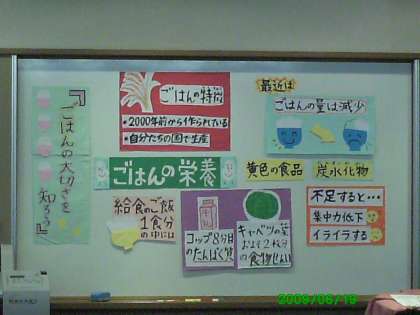 『ごはんの大切さを
知ろう』
ごはんの特徴
・2000年前から作られている
・自分たちの国で生産
最近は
ごはんの量は減少
ごはんの栄養
黄色の食品
炭水化物
給食のご飯
1食分
の中には
コップ8分目
のたんぱく質
キャベツの葉
およそ2枚分
の食物せんい
不足すると…
集中力低下
イライラする
2009/06/19